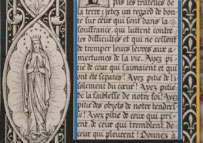 les tristesses de
la terre; jetez un regard de bon
té sur ceux qui sont dans la
souffrance, qui luttent contre
les difficultés et qui ne cessent
de tremper leurs lèvres aux a
mertumes de la vie. Ayez pi
tié de ceux qui s'aimaient et qui
ont été séparés! Ayez pitié de l'i
solement du cœur! Ayez pitié
de la faiblesse de notre foi! Ayez
pitié des objets de notre tendres
se! Ayez pitié de ceux qui prient,
de ceux qui tremblent, de
ceux qui pleurent! Donnez